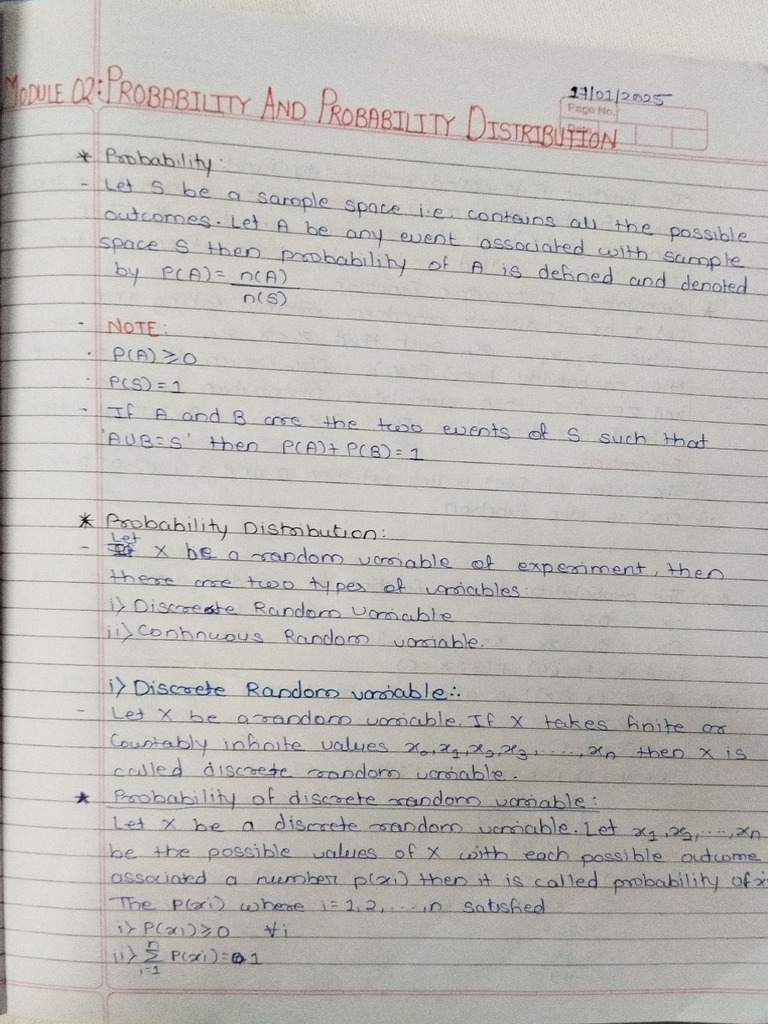 17/01/2025
Page No.
MODULE 02: PROBABILITY AND PROBABILITY DISTRIBUTION
* Probability:
- Let S be a sample space i.e. contains all the possible
outcomes. Let A be any event associated with sample
space S then probability of A is defined and denoted
by P(A) = n(A)
n(S)
- NOTE:
· P(A) ≥ 0
· P(S) = 1
- If A and B are the two events of S such that
'A∪B=S' then P(A) + P(B) = 1
* Probability Distribution:
- Let X be a random variable of experiment, then
there are two types of variables:
i) Discrete Random Variable
ii) Continuous Random variable.
i) Discrete Random variable:
- Let X be a random variable. If X takes finite or
Countably infinite values x₀, x₁, x₂, x₃, ....., xₙ then X is
called discrete random variable.
* Probability of discrete random variable:
Let X be a discrete random variable. Let x₁, x₂, ..., xₙ
be the possible values of X with each possible outcome
associated a number p(xi) then it is called probability of xi
The P(xi) where i = 1, 2, ...., n satisfied
i) P(xi) ≥ 0 ∀i
ii) n∑i=1 P(xi) = 1